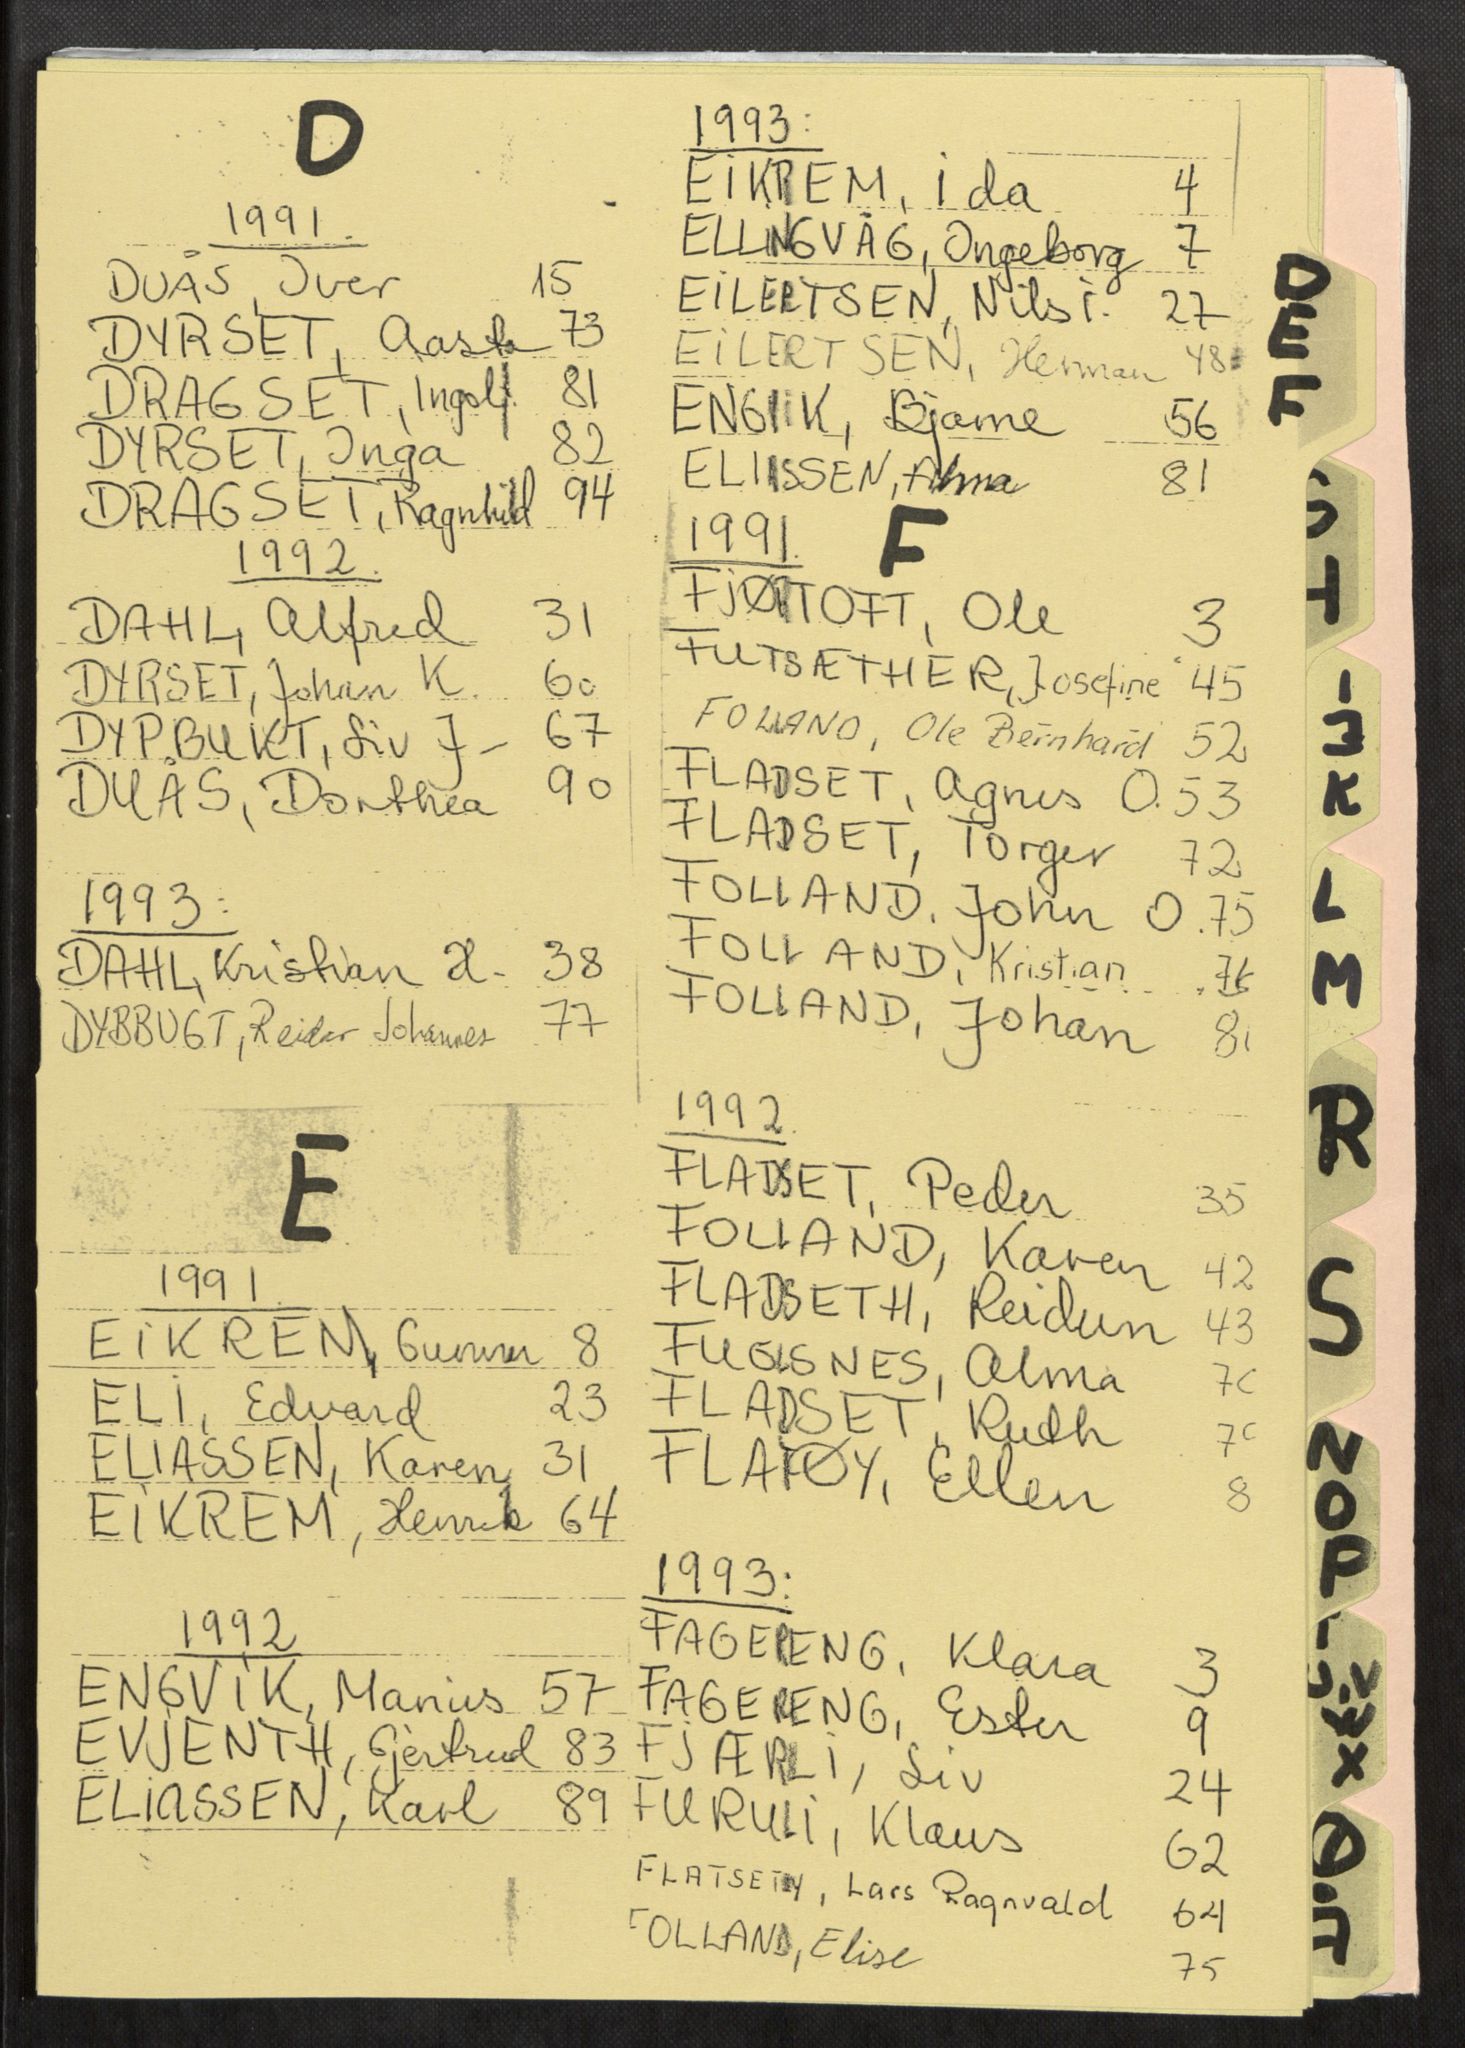 D
1991.
DUÅS, Iver 15
DYRSET, Aasta 73
DRAGSET, Ingolf 81
DYRSET, Inga 82
DRAGSET, Ragnhild 94
1992.
DAHL, Alfred 31
DYRSET, Johan K. 60
DYPBUKT, Siv J- 67
DUÅS, Dorthea 90
1993:
DAHL, Kristian H. 38
DYBBUGT, Reidar Johannes 77
E
1991
EIKREM, Gunnar 8
ELI, Edvard 23
ELIASSEN, Karen 31
EIKREM, Henrik 64
1992
ENGVIK, Marius 57
EVJENTH, Gjertrud 83
ELIASSEN, Karl 89
1993:
EIKREM, Ida 4
ELLINGVÅG, Ingeborg 7
EILERTSEN, Nils I. 27
EILERTSEN, Herman 48
ENGVIK, Bjarne 56
ELIASSEN, Alma 81
F
1991.
FJØRTOFT, Ole 3
FUTSÆTHER, Josefine 45
FOLLAND, Ole Bernhard 52
FLADSET, Agnes O. 53
FLADSET, Torger 72
FOLLAND, John O. 75
FOLLAND, Kristian 76
FOLLAND, Johan 81
1992.
FLADSET, Peder 35
FOLLAND, Karen 42
FLADSETH, Reidun 43
FUGLSNES, Alma
FLADSET, Ruth
FLATØY, Ellen 8
1993:
FAGERENG, Klara 3
FAGERENG, Ester 9
FJÆRLI, Siv 24
FURULI, Klaus 62
FLATSETH, Lars Ragnvald 64
FOLLAND, Elise 75
D
E
F
L
M
R
S
N
O
P